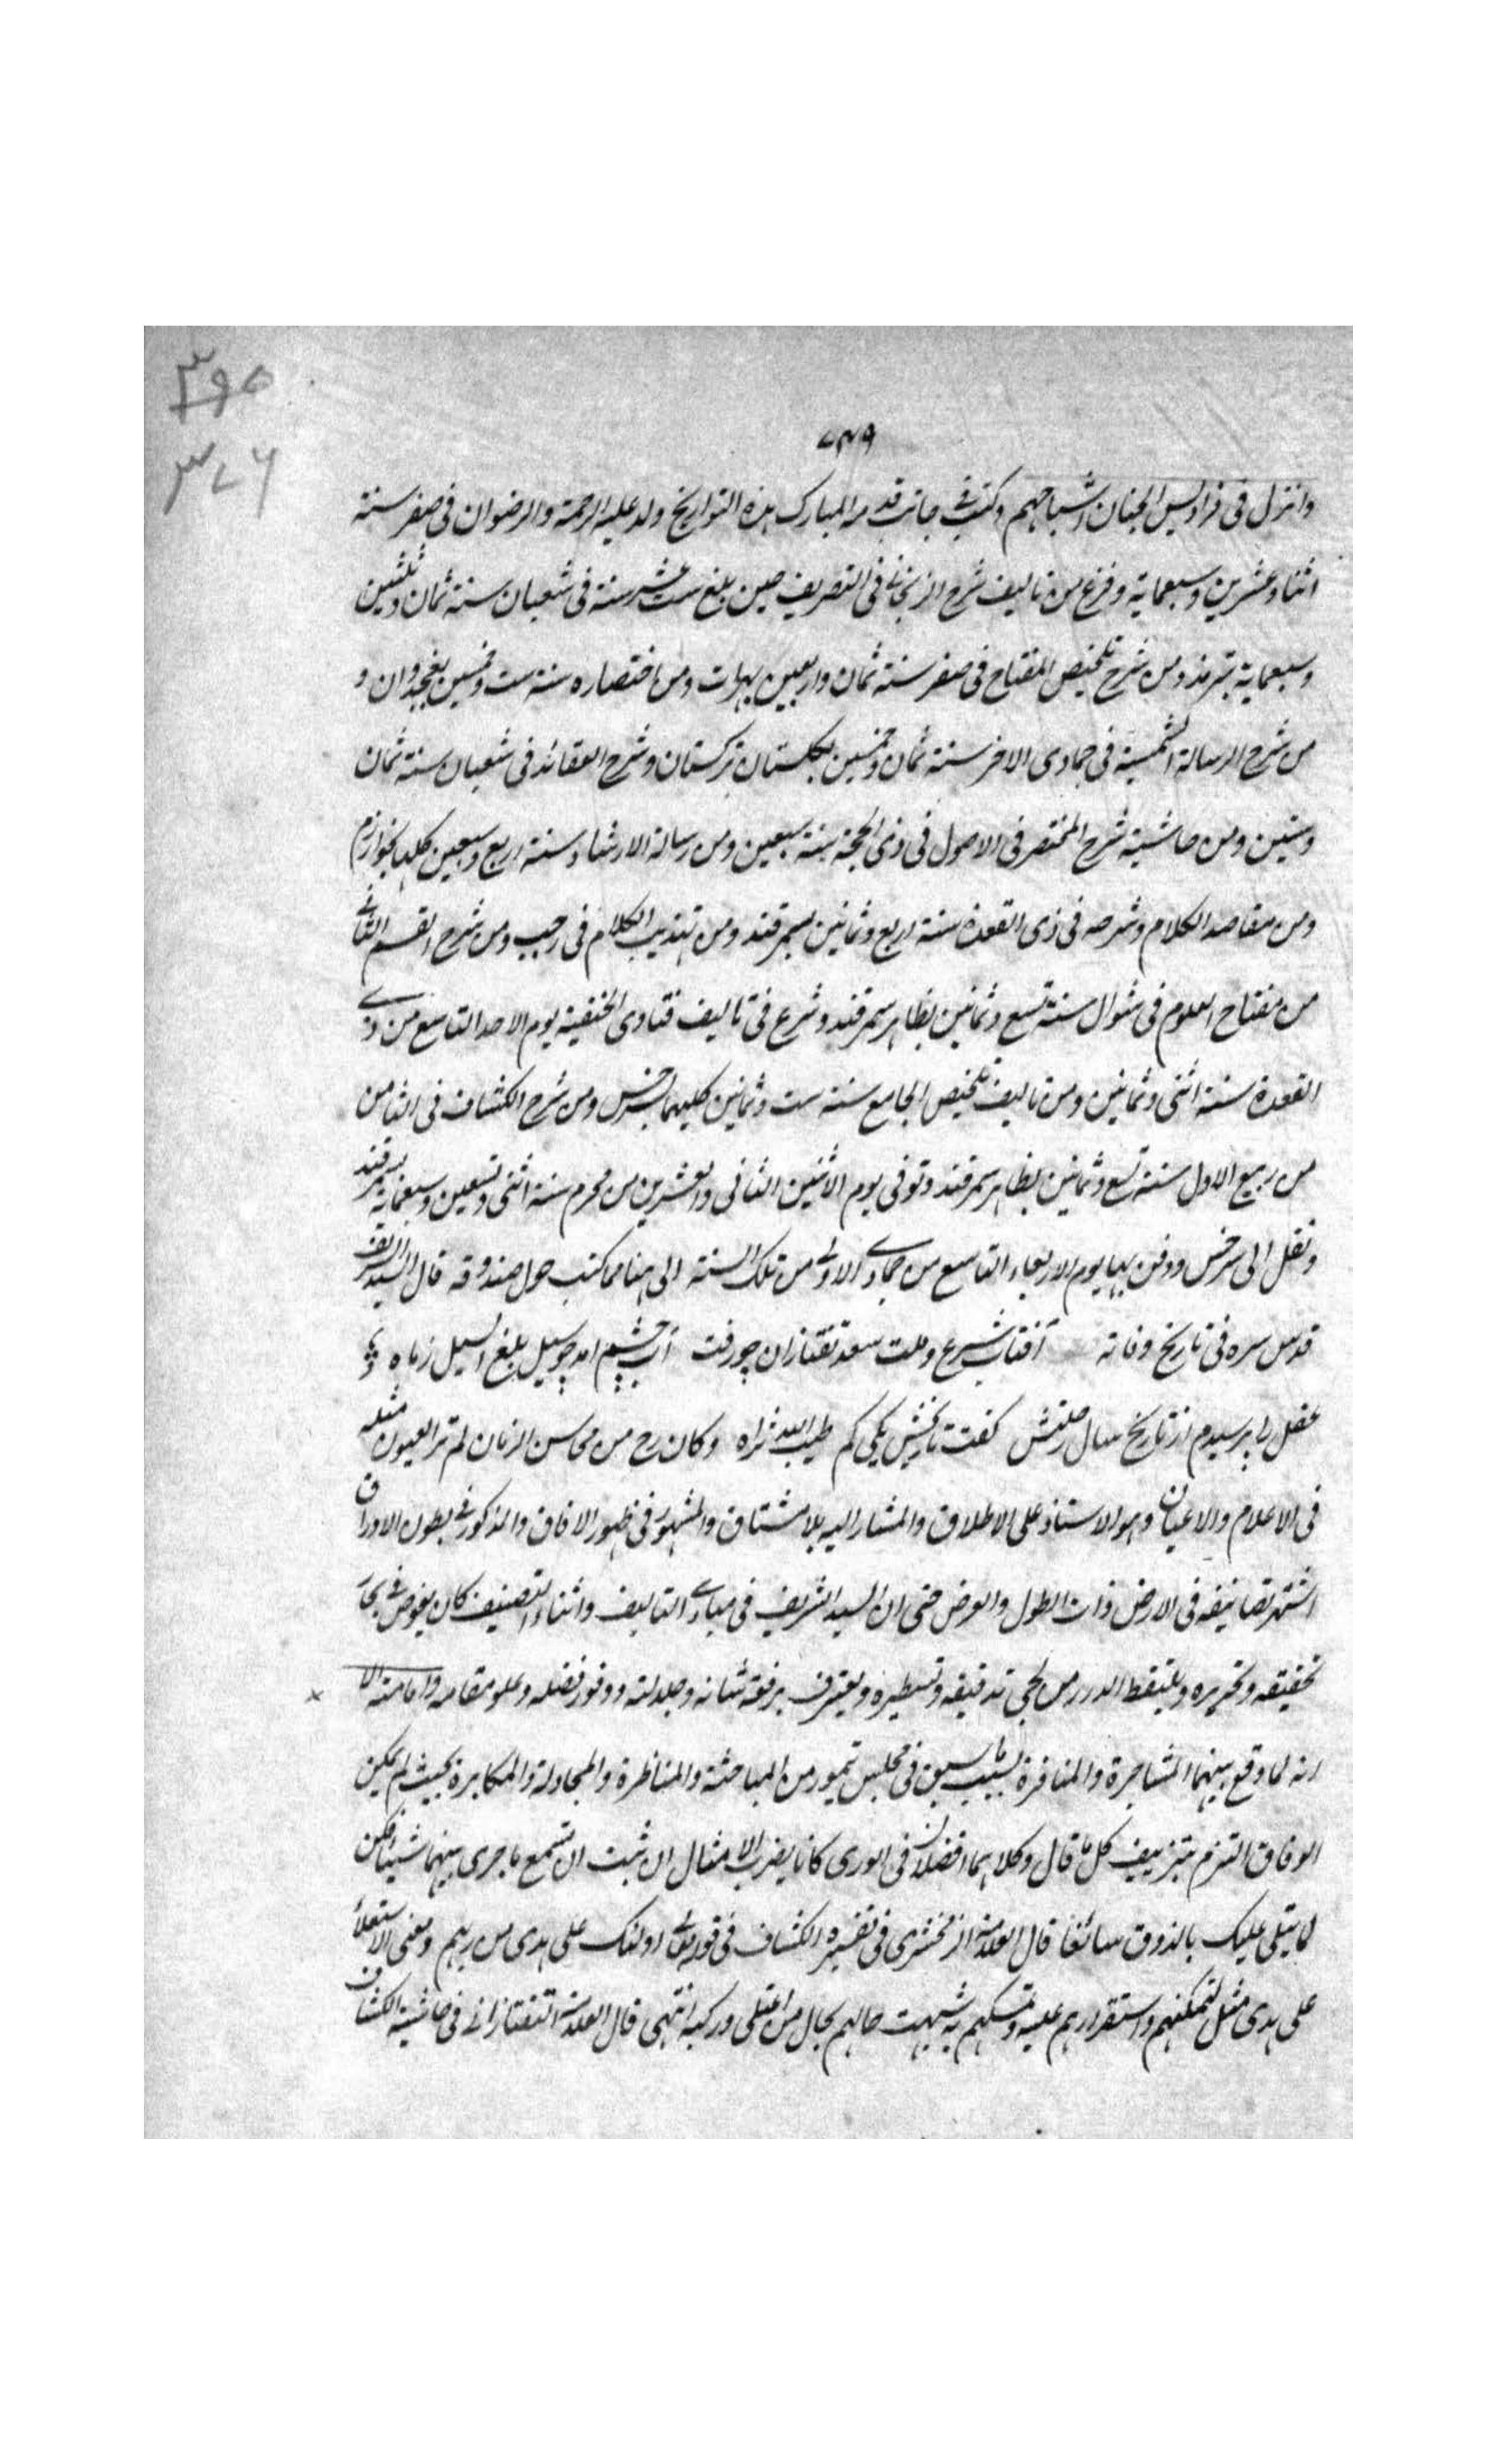 ٣٩٥
٣٧٦
٧٣٩
وانزل فى فراديس الجنان اشباحهم وكتب فى جانب قدمه المبارك هذه التواريخ ولد عليه الرحمة والرضوان فى صفر سنة
اثنا وعشرين وسبعماية وفرغ من تاليف شرح الزنجانى فى التصريف حين بلغ ست عشر سنة فى شعبان سنة ثمان وثلثين
وسبعماية بترمذ ومن شرح تلخيص المفتاح فى صفر سنة ثمان واربعين بهرات ومن اختصاره سنة ست وخمسين بغجدوان و
من شرح الرسالة الشمسية فى جمادى الاخر سنة ثمان وخمسين بكلستان تركستان وشرح العقائد فى شعبان سنة ثمان
وستين ومن حاشية شرح المختصر فى الاصول فى ذى الحجة سنة سبعين ومن رسالة الارشاد سنة اربع وسبعين كلها بخوارزم
ومن مقاصد الكلام وشرحه فى ذى القعدة سنة اربع وثمانين بسمرقند ومن تهذيب الكلام فى رجب ومن شرح القسم الثالث
من مفتاح العلوم فى شوال سنة تسع وثمانين بظاهر سمرقند وشرع فى تاليف فتاوى الحنفية يوم الاحد التاسع من ذى
القعدة سنة اثنى وثمانين ومن تاليف تلخيص الجامع سنة ست وثمانين كليهما بسرخس ومن شرح الكشاف فى الثامن
من ربيع الاول سنة تسع وثمانين بظاهر سمرقند وتوفى يوم الاثنين الثانى والعشرين من محرم سنة اثنى وتسعين وسبعماية بسمرقند
ونقل الى سرخس ودفن بها يوم الاربعاء التاسع من جمادى الاولى من تلك السنة الى هنا مما كتب حول صندوقه قال السيد الشريف
قدس سره فى تاريخ وفاته آفتاب شرع وملت سعد تفتازان چو رفت آب چشمم امد چو سيل بلغ السيل زباه
عقل را پرسيدم از تاريخ سال رحلتش كفت تاريخش يكى كم طيب الله ثراه وكان رح من محاسن الزمان لم تر العيون مثله
فى الاعلام والاعيان وهو الاستاذ على الاطلاق والمشار اليه بلا مشتاق والمشهور فى ظهور الافاق والمذكور فى بطون الاوراق
اشتهر تصانيفه فى الارض ذات الطول والعرض حتى ان السيد الشريف فى مبادى التاليف واثناء التصنيف كان يغوص فى بحار
تحقيقه وتحريره ويلتقط الدرر من لجج تدقيقه وتسطيره ويعترف برفعة شانه وجلالته ووفور فضله وعلو مقامه وامامته الا
انه لما وقع بينهما المشاجرة والمنافرة بسبب ما سبق فى مجلس تيمور من المباحثة والمناظرة والمجادلة والمكابرة بحيث لم يمكن
الوفاق التزم بتزييف كل ما قال وكلاهما افضلان فى الورى كانا يضرب الامثال ان شئت ان تسمع ما جرى بينهما شيئا فكن
لما يتلى عليك بالذوق سائغا قال العلامة الزمخشرى فى تفسيره الكشاف فى قوله تعالى اولئك على هدى من ربهم ومعنى الاستعلاء
على هدى مثل لتمكنهم واستقرارهم عليه وتمسكهم به شبهت حالهم بحال من اعتلى وركبه انتهى قال العلامة التفتازانى فى حاشية الكشاف